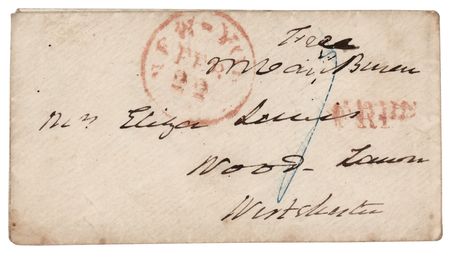 Free
M Van Buren
NEW-YORK
FEB
22
FREE
Mrs Eliza Lewis
Wood-Lawn
Westchester